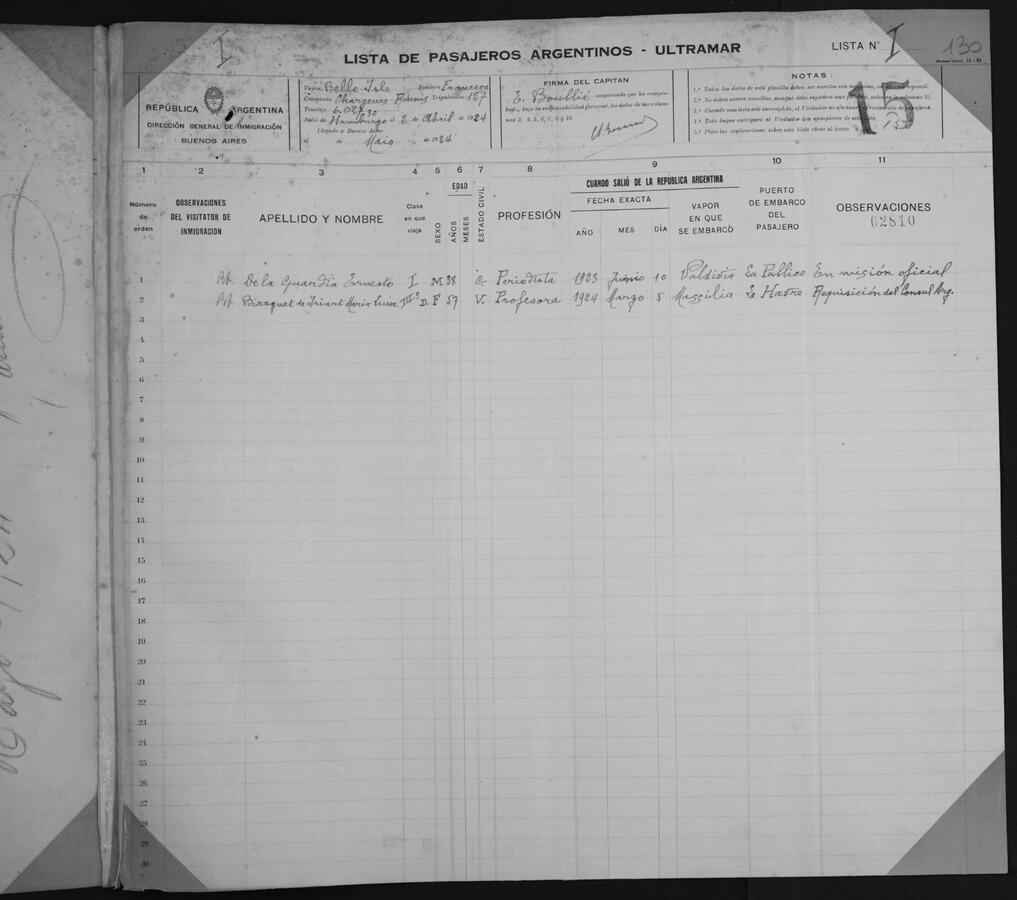 I
LISTA DE PASAJEROS ARGENTINOS - ULTRAMAR
LISTA N° I
130
REPÚBLICA ARGENTINA
DIRECCIÓN GENERAL DE INMIGRACIÓN
BUENOS AIRES
Vapor Belle Isle Bandera Francesa
Compañía Chargeurs Réunis Tripulación 187
Tonelaje
Salió de Hamburgo el 2 de Abril de 1924
Llegado a Buenos Aires
el de Maio de 1924
FIRMA DEL CAPITAN
E. Boullié asegurando que ha compro-
bado, bajo su responsabilidad personal, los datos de las colum-
nas 3, 4, 5, 6, 8, 9 y 10.
NOTAS :
1.° Todos los datos de esta planilla deben ser escritos con
2.° No deben usarse comillas, aunque deba repetirse
3.° Cuando una lista esté incompleta, el Visitador no efectuará
4.° Todo buque entregará al Visitador dos ejemplares de esta
5.° Para las explicaciones sobre esta lista véase al dorso.
15
1 2 3 4 5 6 7 8 9 10 11
Número de orden
OBSERVACIONES DEL VISITADOR DE INMIGRACIÓN
APELLIDO Y NOMBRE
Clase en que viaja
SEXO
EDAD
AÑOS
MESES
ESTADO CIVIL
PROFESIÓN
CUANDO SALIÓ DE LA REPÚBLICA ARGENTINA
FECHA EXACTA
AÑO MES DÍA
VAPOR EN QUE SE EMBARCÓ
PUERTO DE EMBARCO DEL PASAJERO
OBSERVACIONES
02810
1 De la Guardia Ernesto I M 38 C Periodista 1923 Junio 10 Valdivia La Pallice En misión oficial
2 de Iriart Maria Luisa F 57 V. Profesora 1924 Marzo 5 Massilia Le Havre Requisición del Consul Arg.
3
4
5
6
7
8
9
10
11
12
13
14
15
16
17
18
19
20
21
22
23
24
25
26
27
28
29
30